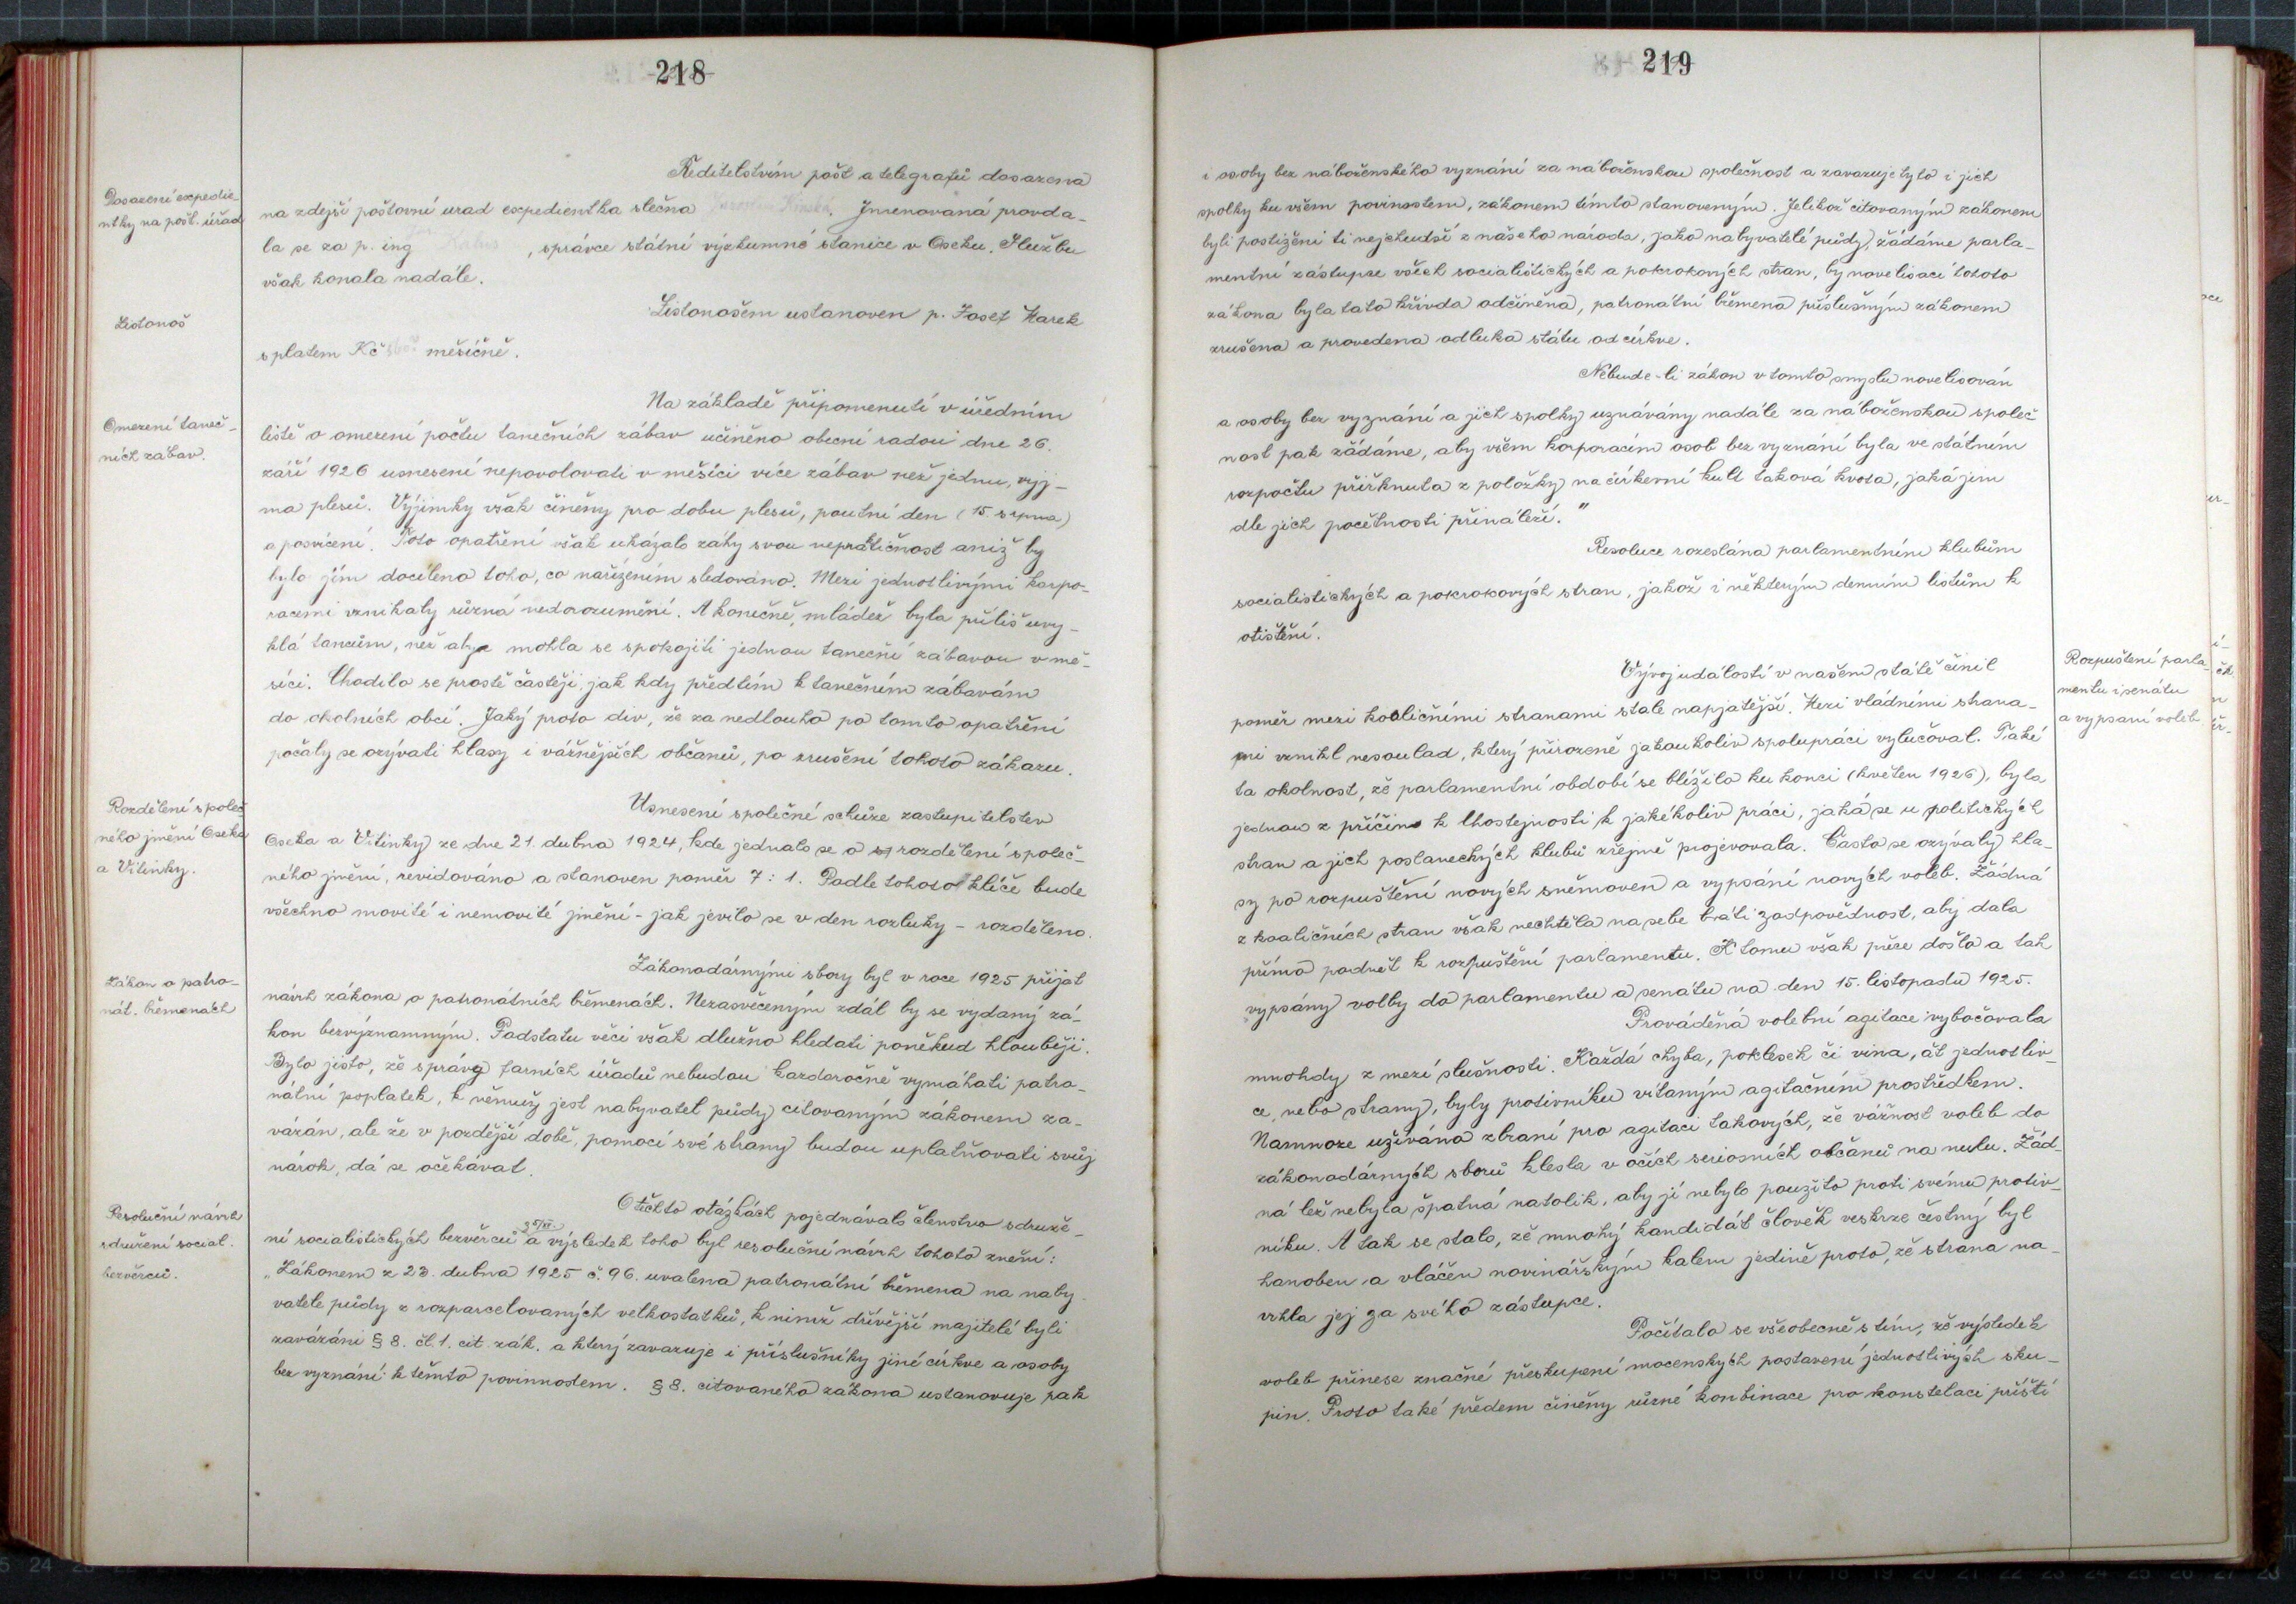 218
Dosazení expedie-
ntky na pošt. úřad
Ředitelstvím pošt a telegrafů dosazena
na zdejší poštovní urad expedientka slečna . Jmenovaná provda-
la se za p. ing , správce státní výzkumné stanice v Oseku. Službu
však konala nadále.
Listonoš
Listonošem ustanoven p. Josef Marek
s platem Kč měsíčně.
Omezení taneč-
ních zábav.
Na základě připomenutí v úředním
listě o omezení počtu tanečních zábav učiněno obecní radou dne 26.
září 1926 usnesení nepovolovati v měsíci více zábav než jednu, vyj-
ma plesů. Výjimky však činěny pro dobu plesů, poutní den (15. srpna)
a posvícení. Toto opatření však ukázalo záhy svou nepraktičnost aniž by
bylo jím docíleno toho, co nařízením sledováno. Mezi jednotlivými korpo-
racemi vznikaly různá nedorozumění. A konečně, mládež byla příliš uvy-
klá tancům, než aby mohla se spokojiti jednou taneční zábavou v mě-
síci. Chodilo se prostě častěji, jak kdy předtím k tanečním zábavám
do okolních obcí. Jaký proto div, že za nedlouho po tomto opatření
počaly se ozývati hlasy i vážnějších občanů, po zrušení tohoto zákazu.
Rozdělení společ
ného jmění Oseka
a Vitinky.
Usnesení společné schůze zastupitelstev
Oseka a Vitinky ze dne 21. dubna 1924, kde jednalo se o rozdělení společ-
ného jmění, revidováno a stanoven poměr 7:1. Podle tohoto klíče bude
všechno movité i nemovité jmění - jak jevilo se v den rozluky - rozděleno.
Zákon o patro-
nát. břemenách
Zákonodárnými sbory byl v roce 1925 přijat
návrh zákona o patronátních břemenách. Nezasvěceným zdál by se vydaný zá-
kon bezvýznamným. Podstatu věci však dlužno hledati poněkud hlouběji.
Bylo jisto, že správy farních úřadů nebudou každoročně vymáhati patro-
nátní poplatek, k němuž jest nabyvatel půdy citovaným zákonem za-
vázán, ale že v pozdější době, pomocí své strany budou uplatňovati svůj
nárok, dá se očekávat.
Resoluční návrh
sdružení social.
bezvěrců.
O těchto otázkách pojednávalo členstvo sdruže-
ní socialistických bezvěrců a výsledek toho byl resoluční návrh tohoto znění:
„Zákonem z 23. dubna 1925 č. 96. uvalena patronátní břemena na naby-
vatele půdy z rozparcelovaných velkostatků, k nimž dřívější majitelé byli
zavázáni § 8. čl. 1. cit. zák. a který zavazuje i příslušníky jiné církve a osoby
bez vyznání k těmto povinnostem. § 8. citovaného zákona ustanovuje pak
219
i osoby bez náboženského vyznání za náboženskou společnost a zavazuje tyto i jich
spolky ku všem povinostem, zákonem tímto stanoveným. Jelikož citovaným zákonem
byli postiženi ti nejchudší z našeho národa, jako nabyvatelé půdy, žádáme parla-
mentní zástupce všech socialistických a pokrokových stran, by novelisací tohoto
zákona byla tato křivda odčiněna, patronátní břemena příslušným zákonem
zrušena a provedena odluka státu od církve.
Nebude-li zákon v tomto smyslu novelisován
a osoby bez vyznání a jich spolky uznávány nadále za náboženskou společ
nost pak žádáme, aby všem korporacím osob bez vyznání byla ve státním
rozpočtu přiřknuta z položky na církevní kult taková kvota, jaká jim
dle jich početnosti přináleží."
Resoluce rozeslána parlamentním klubům
socialistických a pokrokových stran, jakož i některým denním listům k
otištění.
Rozpuštění parla-
mentu i senátu
a vypsaní voleb
Vývoj událostí v našem státě činil
poměr mezi koaličními stranami stale napjatější. Mezi vládními strana-
mi vznikl nesoulad, který přirozeně jakoukoliv spolupráci vylučoval. Také
ta okolnost, že parlamentní období se blížilo ku konci (květen 1926), byla
jednou z příčin k lhostejnosti k jakékoliv práci, jaká se u politických
stran a jich poslaneckých klubů zřejmě projevovala. Často se ozývaly hla-
sy po rozpuštění nových sněmoven a vypsání nových voleb. Žádná
z koaličních stran však nechtěla na sebe bráti zodpovědnost, aby dala
přímo podnět k rozpuštění parlamentu. K tomu však přece došlo a tak
vypsány volby do parlamentu a senátu na den 15. listopadu 1925.
Prováděná volební agitace vybočovala
mnohdy z mezí slušnosti. Každá chyba, poklesek či vina, ať jednotliv-
ce nebo strany, byly protivníku vítaným agitačním prostředkem.
Namnoze užíváno zbraní pro agitaci takových, že vážnost voleb do
zákonodárných sborů klesla v očích seriosních občanů na nulu. Žád-
ná lež nebyla špatná natolik, aby jí nebylo použito proti svému protiv-
níku. A tak se stalo, že mnohý kandidát člověk veskrze čestný byl
hanoben a vláčen novinářským kalem jedině proto, že strana na-
vrhla jej za svého zástupce.
Počítalo se všeobecně s tím, že výsledek
voleb přinese značné přeskupení mocenských postavení jednotlivých sku-
pin. Proto také předem činěny různé kombinace pro konstelaci příští